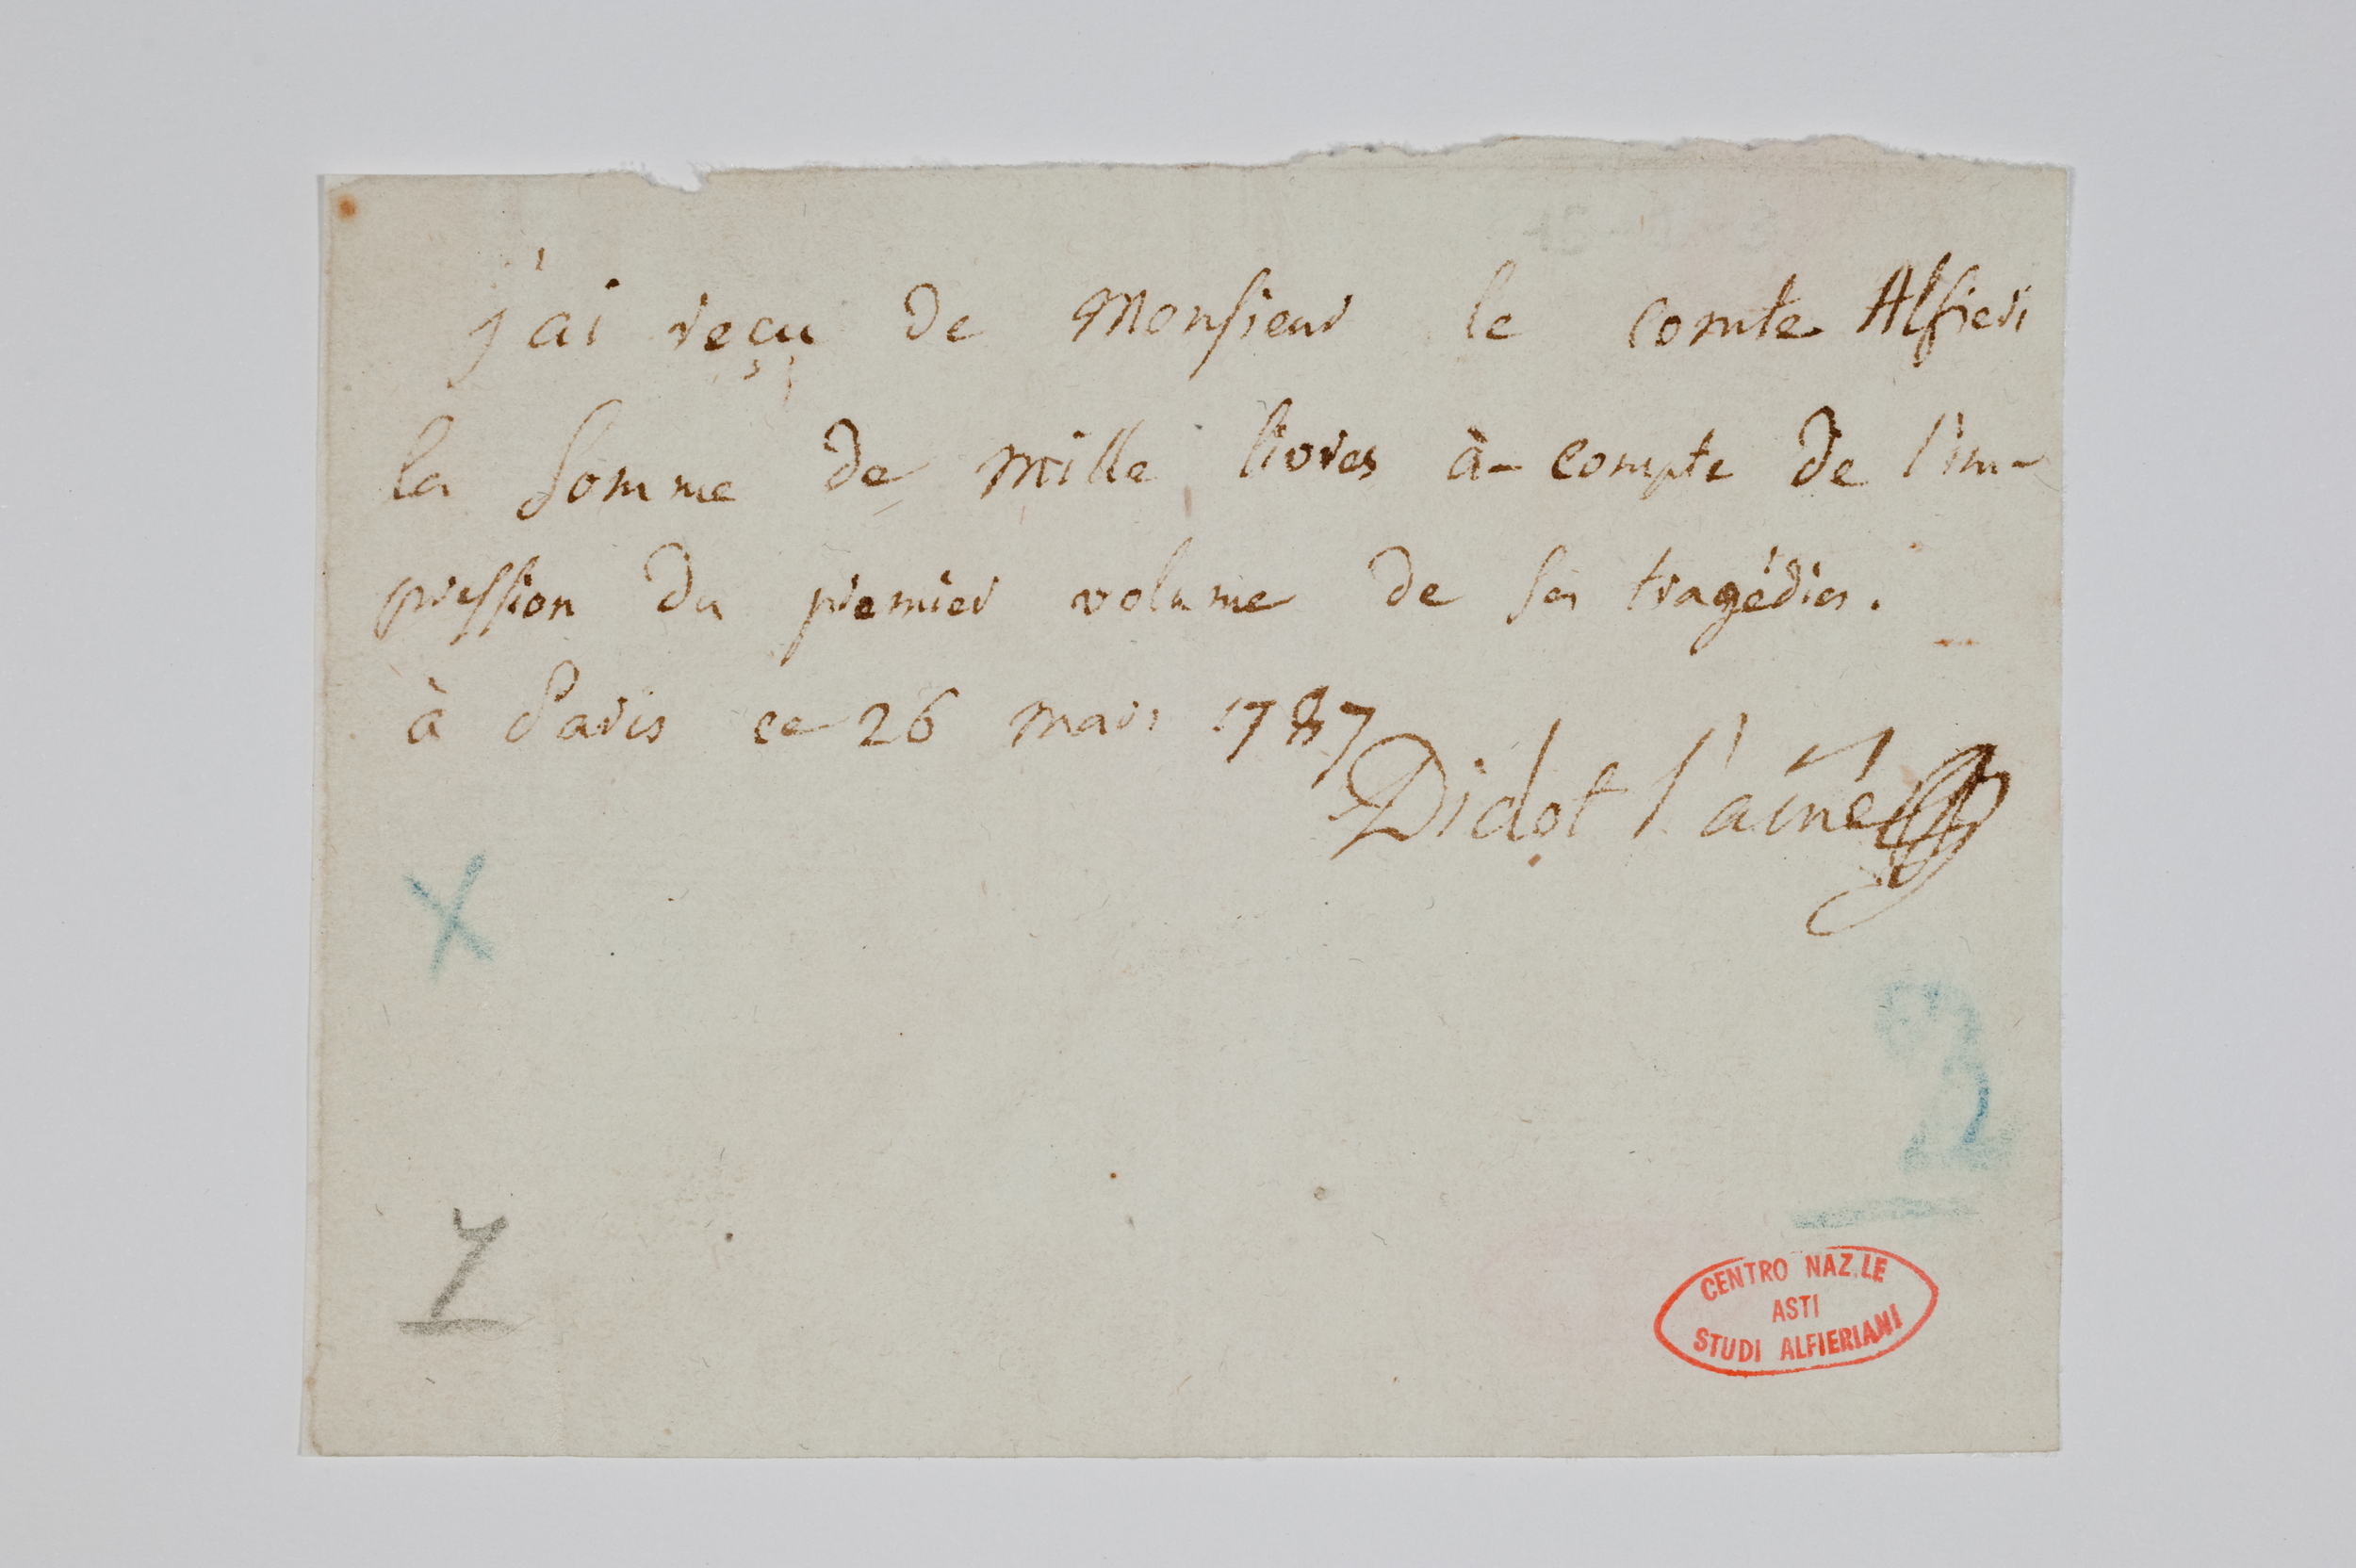 j'ai reçu de Monsieur le comte Alfieri
la somme de mille livres à-compte de l'im-
pression du premier volume de ses tragédies.
à Paris ce 26 mars 1787
Didot l'aîné
X
2
1
CENTRO NAZ.LE
ASTI
STUDI ALFIERIANI